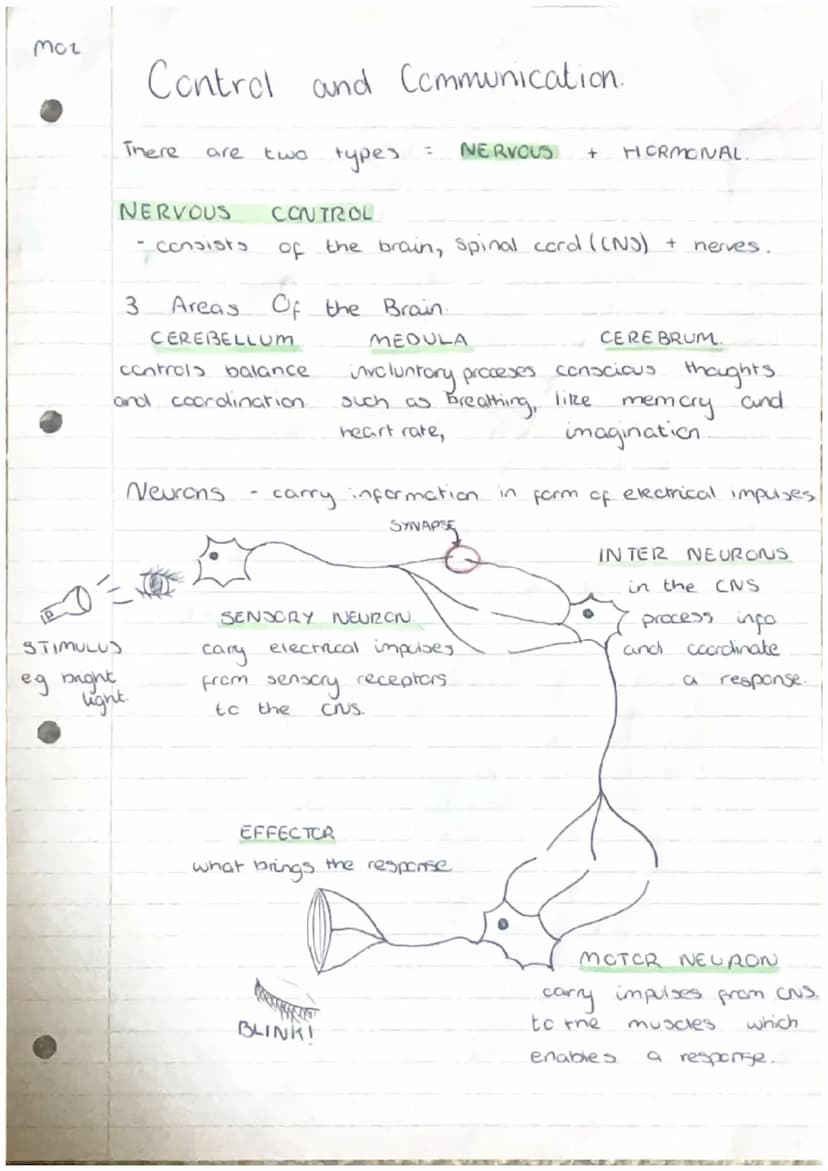 MO2
Control and Communication.
There are two types : NERVOUS + HORMONAL.
NERVOUS CONTROL
- consists of the brain, spinal cord (CNS) + nerves.
3 Areas Of the Brain.
CEREBELLUM
controls balance
and coordination
MEDULA
involuntary proceses
such as Breathing,
heart rate,
CEREBRUM.
conscious thoughts
like memory and
imagination.
Neurons - carry information in form of electrical impulses
SYNAPSE
STIMULUS
eg bright
light.
SENSORY NEURON
carry electrical impulses
from sensory receptors
to the CNS.
INTER NEURONS
in the CNS
process info
and coordinate
a response.
EFFECTOR
what brings the response
BLINK!
MOTOR NEURON
carry impulses from CNS.
to the muscles which
enables a response.